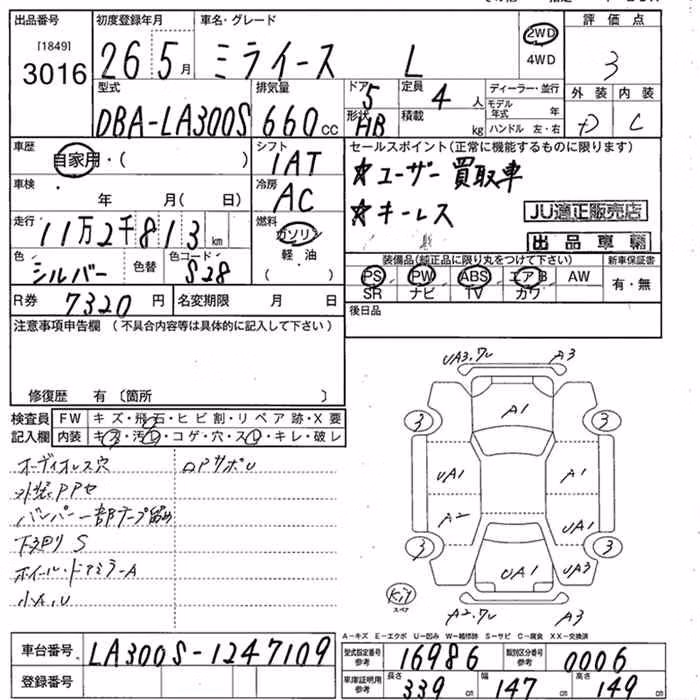 出品番号 初度登録年月 車名・グレード 評価点
[1849]
3016 26 5月 ミライース L 2WD 4WD 3
型式 排気量 ドア 5 定員 4人 ディーラー・並行 外装 内装
DBA-LA300S 660cc 形状 HB 積載 kg モデル年式 年 ハンドル 左・右 D C
車歴 自家用・( ) シフト 1AT セールスポイント(正常に機能するものに限ります)
☆ユーザー買取車
車検 年 月( 日) 冷房 AC
☆キーレス JU適正販売店
走行 11万2千813km 燃料 ガソリン 軽油 ( )
出品車輌
色 シルバー 色替 色コード S28
装備品(純正品に限り丸をつけて下さい) 新車保証書
PS PW ABS エアB AW 有・無
SR ナビ TV カワ
R券 7320円 名変期限 月 日
後日品
注意事項申告欄 (不具合内容等は具体的に記入して下さい)
修復歴 有 〔箇所 〕
検査員 FW キズ・飛石・ヒビ割・リペア跡・X要
記入欄 内装 キズ・汚レ・コゲ・穴・スレ・キレ・破レ
オーディオレス穴
バンパー一部テープ留め
下廻りS
ホイール・ドアミラーA
小A、U
A3
A1
3 3
UA1 A1
A2 UA1
3 3
UA1 UA3
キット
スペア
A3
A-キズ E-エクボ U-凹み W-補修跡 S-サビ C-腐食 XX-交換済
車台番号 LA300S-1247109
型式指定番号 参考 16986 類別区分番号 参考 0006
登録番号
車庫証明用 参考 長さ 339cm 幅 147cm 高さ 149cm